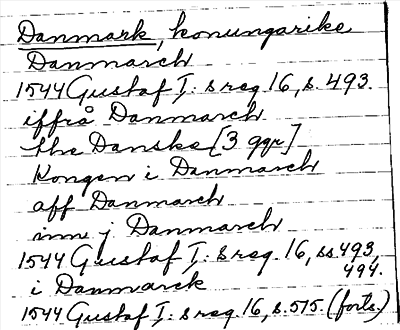 Danmark, konungarike
Danmarch
1544 Gustaf I: s reg. 16, s. 493.
iffrå Danmarch
the Danske [3 ggr]
Kongen i Danmarch
aff Danmarch
inn j Danmarch
1544 Gustaf I: s reg. 16, ss 493, 494.
i Danmarck
1544 Gustaf I: s reg. 16, s. 515. (forts.)